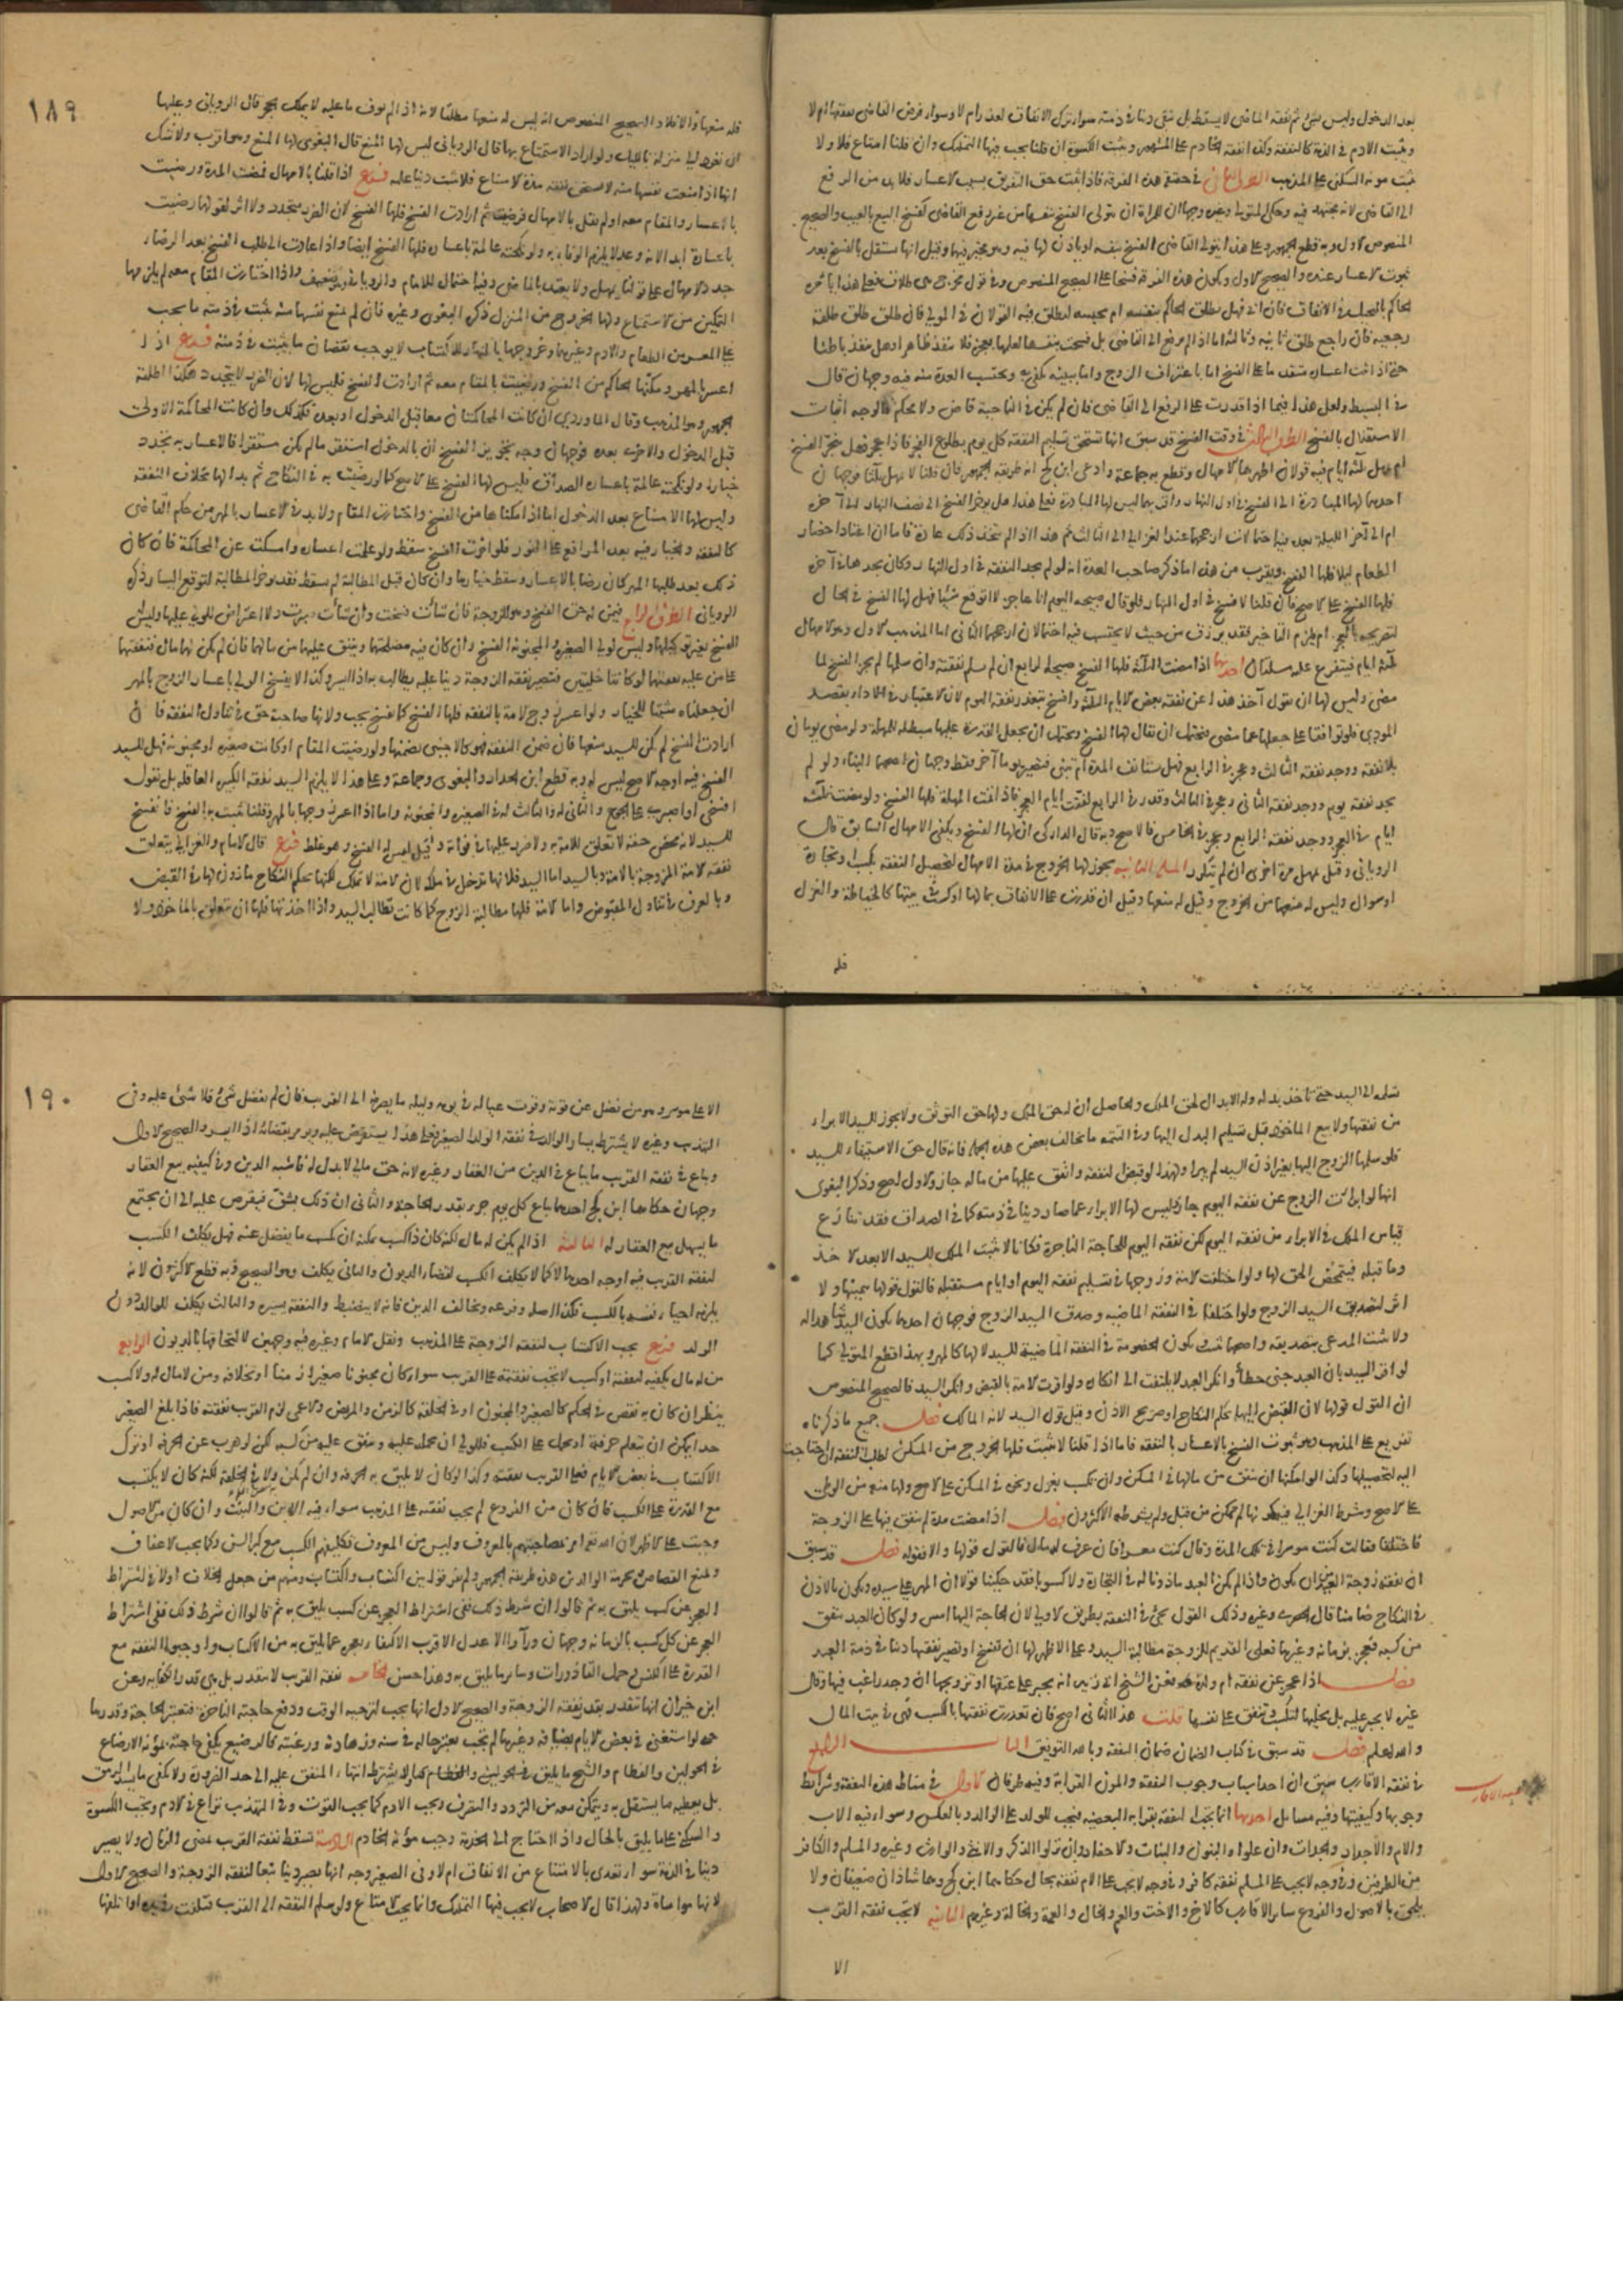 بعد الدخول وليس بشئ ثم نفقة الماضي لا يسقط بل تبقى دينا في ذمته سواء ترك الانفاق لعذر ام لا وسواء فرض القاضي نفقتها ام لا
ويثبت الادم في الذمة كالنفقة وكذا نفقة الخادم على المشهور ويثبت الكسوة ان قلنا يجب فيها التمليك وان قلنا امتاع فلا ولا
تثبت مونة السكنى على المذهب الطرف الثاني في حقيقة هذه الفرقة فاذا ثبت حق التفريق بسبب الاعسار فلا بد من الرفع
الى القاضي لانه مجتهد فيه وحكى المتولي وغيره وجها ان للمراة ان تتولى الفسخ بنفسها من غير رفع الى القاضي كفسخ البيع بالعيب والصحيح
المنصوص الاول وبه قطع الجمهور وعلى هذا يتولى القاضي الفسخ بنفسه او ياذن لها فيه وهو مخير فيهما وقيل انها تستقل بالفسخ بعد
ثبوت الاعسار عنده والصحيح الاول ويكون هذه الفرقة فسخا على الصحيح المنصوص وفي قول مخرج هي طلاق فعلى هذا يامره
الحاكم بالتحصيل في الانفاق فان ابى فهل يطلق الحاكم بنفسه ام يحبسه ليطلق فيه القولان في المولي فان طلق طلق طلقة
رجعية فان راجع طلق ثانية وثالثة اما اذا لم يرفع الى القاضي بل فسخت بنفسها لعلمها بعجزه فلا ينفذ ظاهرا وهل ينفذ باطنا
حتى اذا ثبت اعساره متقدما على الفسخ اما باعتراف الزوج واما ببينة يكتفى به وتحتسب العدة منه فيه وجهان قال
في البسيط ولعل هذا فيما اذا قدرت على الرفع الى القاضي فان لم يكن في الناحية قاض ولا محكم فالوجه اثبات
الاستقلال بالفسخ الطرف الثالث في وقت الفسخ قد سبق انها تستحق تسليم النفقة كل يوم بطلوع الفجر فاذا عجز فهل ينجز الفسخ
ام يمهل ثلثة ايام فيه قولان اظهرهما الامهال وقطع به جماعة وادعى ابن كج انه طريقة الجمهور فان قلنا لا يمهل ثلثا فوجهان
احدهما لها المبادرة الى الفسخ في اول النهار واقربهما ليس لها المبادرة فعلى هذا هل يؤخر الفسخ الى نصف النهار ام الى آخره
ام الى آخر الليلة بعده فيه احتمالات ارجحها عند الغزالي الى الثالث ثم هذا اذا لم يتخذ ذلك عادة فاما ان اعتاد احضار
الطعام ليلا فلها الفسخ ويقرب من هذا ما ذكر صاحب العدة انه لو لم يجد النفقة في اول النهار وكان يجدها في آخره
فلها الفسخ على الاصح فان قلنا لا فسخ في اول النهار فلو قال صبيحة اليوم انا عاجز لا اتوقع شيئا فهل لها الفسخ في الحال
لتصريحه بالعجز ام يلزم التاخير فقد يرزق من حيث لا يحتسب فيه احتمالان ارجحهما الثاني اما المذهب الاول وهو الامهال
ثلثة ايام فيتفرع عليه مسئلتان احديهما اذا مضت الثلثة فلها الفسخ صبيحة الرابع ان لم يسلم نفقته وان سلمها لم يجز الفسخ لما
مضى وليس لها ان تقول آخذ هذا عن نفقة بعض الايام الثلثة وافسخ بتعذر نفقة اليوم لان الاعتبار في الاداء بقصد
المودي فلو توافقا على جعلها عما مضى فيحتمل ان يقال لها الفسخ ويحتمل ان يجعل القدرة عليها مبطلة للمهلة ولو مضى يومان
بلا نفقة ووجد نفقة الثالث وعجز في الرابع فهل يستانف المدة ام تبنى فتصير يوما آخر فقط وجهان اصحهما البناء ولو لم
يجد نفقة يوم ووجد نفقة الثاني وعجز في الثالث وقدر في الرابع لفقت ايام العجز فاذا تمت المهلة فلها الفسخ ولو مضت ثلثة
ايام في العجز ووجد نفقة الرابع وعجز في الخامس فالاصح وبه قال الداركي ان لها الفسخ ويكفي الامهال السابق قال
الروياني وقيل يمهل مرة اخرى ان لم يتكرر المسئلة الثانية يجوز لها الخروج في مدة الامهال لتحصيل النفقة بكسب او تجارة
او سوال وليس له منعها من الخروج وقيل له منعها وقيل ان قدرت على الانفاق بمالها او كسب في بيتها كالخياطة والغزل
فله
١٨٩
فله منعها والا فلا والصحيح المنصوص انه ليس له منعها مطلقا لانه اذا لم يوف ما عليه لا يملك الحجر قال الروياني وعليها
ان تعود الى منزله بالليل ولو اراد الاستمتاع بها قال الروياني ليس لها المنع قال البغوي لها المنع وهو اقرب ولا شك
انها اذا منعت نفسها منه لا تستحق نفقة مدة الامتناع فلا تثبت دينا عليه فرع اذا قلنا بالامهال فمضت المدة ورضيت
بالاعسار والمقام معه او لم نقل بالامهال فرضيت ثم ارادت الفسخ فلها الفسخ لان الضرر متجدد ولا اثر لقولها رضيت
باعساره ابدا لانه وعد لا يلزم الوفاء به ولو نكحته عالمة باعساره فلها الفسخ ايضا واذا عادت الى طلب الفسخ بعد الرضاء
جدد الامهال على قولنا يمهل ولا يعتد بالماضي وفيه احتمال للامام والروياني وهو ضعيف واذا اختارت المقام معه لم يلزمها
التمكين من الاستمتاع ولها الخروج من المنزل ذكره البغوي وغيره فان لم تمنع نفسها منه ثبت في ذمته ما يجب
على المعسر من الطعام والادم وغيرهما وخروجها بالنهار للاكتساب لا يوجب نقصان ما يثبت في ذمته فرع اذا
اعسر بالمهر ومكنها الحاكم من الفسخ ورضيت بالمقام معه ثم ارادت الفسخ فليس لها لان الضرر لا يتجدد هكذا اطلقه
الجمهور وهو المذهب وقال الماوردي ان كانت المحاكمتان معا قبل الدخول او بعده فكذلك وان كانت المحاكمة الاولى
قبل الدخول والاخرى بعده فوجهان وجه تجويز الفسخ ان بالدخول استقر ما لم يكن مستقرا فالاعسار به يجدد
خيارا ولو نكحته عالمة باعساره بالصداق فليس لها الفسخ على الاصح كما لو رضيت به في النكاح ثم بدا لها بخلاف النفقة
وليس لها الامتناع بعد الدخول اما اذا مكنا ها من الفسخ واختارت المقام ولا بد في الاعسار بالمهر من حكم القاضي
كالنفقة والخيار فيه بعد المرافعة على الفور فلو اخرت الفسخ سقط ولو علمت اعساره وامسكت عن المحاكمة فان كان
ذلك بعد طلبها المهر كان رضا بالاعسار وسقط خيارها وان كان قبل المطالبة لم يسقط فقد يوخر المطالبة لتوقع اليسار ذكره
الروياني الطرف الرابع فيمن له حق الفسخ وهو للزوجة فان شأت فسخت وان شأت صبرت ولا اعتراض للولي عليها وليس له
الفسخ بغير توكيلها وليس لولي الصغيرة والمجنونة الفسخ وان كان فيه مصلحتهما وينفق عليهما من مالهما فان لم يكن لهما مال فنفقتهما
على من عليه نفقتهما لو كانتا خليتين فتصير نفقة الزوجة دينا عليه يطالب به اذا ايسر وكذا لا يفسخ الولي باعسار الزوج بالمهر
ان جعلناه مثبتا للخيار ولو اعسر زوج الامة بالنفقة فلها الفسخ كما تفسخ بجبه ولانها صاحبة حق في تناول النفقة فان
ارادت الفسخ لم يكن للسيد منعها فان ضمن النفقة فهو كالاجنبي يضمنها ولو رضيت المقام او كانت صغيرة او مجنونة فهل للسيد
الفسخ فيه اوجه الاصح ليس له وبه قطع ابن الحداد والبغوي وجماعة وعلى هذا لا يلزم السيد نفقة الكبيرة العاقلة بل نقول
افسخي او اصبري على الجوع والثاني له والثالث له في الصغيرة والمجنونة واما اذا اعسر زوجها بالمهر وقلنا يثبت به الفسخ فالفسخ
للسيد لانه محض حقه لا تعلق للامة به ولا ضرر عليها في فواته وقيل ليس له الفسخ وهو غلط فرع قال الامام والغزالي يتعلق
نفقة الامة المزوجة بالامة وبالسيد اما السيد فلانها تدخل في ملكه لان الامة لا تملك لكنها بحكم النكاح ماذون لها في القبض
وبالعرف في تناول المقبوض واما الامة فلها مطالبة الزوج كما كانت تطالب السيد واذا اخذتها فلها ان تتعلق بالماخوذ ولا
تسلمه الى السيد حتى تاخذ بدله وله الابدال لحق الملك والحاصل ان له حق الملك ولها حق التوثق ولا يجوز للسيد الابراء
من نفقتها ولا بيع الماخوذ قبل تسليم البدل اليها وفي التتمه ما يخالف بعض هذه الجملة فانه قال حق الاستيفاء للسيد
فلو سلمها الزوج اليها بغير اذن السيد لم يبرا ولهذا لو قبض النفقة وانفق عليها من ماله جاز والاول اصح وذكر البغوي
انها لو ابرات الزوج عن نفقة اليوم جاز وليس لها الابراء عما صار دينا في ذمته كما في الصداق فقد تنازع
قياس الملك في الابراء من نفقة اليوم لكن نفقة اليوم للحاجة الناجزة فكانه لا يثبت الملك للسيد الا بعد الاخذ
وما قبله فيتمحض الحق لها ولو اختلفت الامة وزوجها في تسليم نفقة اليوم او ايام مستقبلة فالقول قولها بيمينها ولا
اثر لتصديق السيد الزوج ولو اختلفا في النفقة الماضية وصدق السيد الزوج فوجهان احدهما يكون السيد شاهدا له
ولا يثبت المدعى بتصديقه واصحهما يثبت ويكون الخصومة في النفقة الماضية للسيد لا لها كالمهر وبهذا قطع المتولي كما
لو اقر السيد بان العبد جنى خطأ وانكر العبد لا يلتفت الى انكاره ولو اقرت الامة بالقبض وانكر السيد فالصحيح المنصوص
ان القول قولها لان القبض اليها بحكم النكاح او صريح الاذن وقيل قول السيد لانه المالك فصل جميع ما ذكرناه
تفريع على المذهب وهو ثبوت الفسخ بالاعسار بالنفقة فاما اذا قلنا لا يثبت فلها الخروج من المسكن لطلب النفقة ان احتاجت
اليه لتحصيلها وكذا لو امكنها ان تنفق من مالها في المسكن وان تكسب بغزل ونحوه في المسكن على الاصح ولها منعه من الوطي
على الاصح وشرط الغزالي فيه كونها لم تمكن من قبل ولم يشرطه الاكثرون فصل اذا مضت مدة لم ينفق فيها على الزوجة
فاختلفا فقالت كنت موسرا في تلك المدة وقال كنت معسرا فان عرف له مال فالقول قولها والا فقوله فصل قد سبق
ان نفقة زوجة العبد اين يكون واذا لم يكن العبد ماذونا له في التجارة ولا كسوبا فقد حكينا قولا ان المهر على سيده ويكون بالاذن
في النكاح ضامنا قال الجويني وغيره وذلك القول يجئ في النفقة بطريق الاولى لان الحاجة اليها امس ولو كان العبد ينفق
من كسبه فعجز بزمانة وغيرها فعلى القديم للزوجة مطالبة السيد وعلى الاظهر لها ان تفسخ او تصير نفقتها دينا في ذمة العبد
فصل اذا عجز عن نفقة ام ولده فعن الشيخ ابي زيد انه يجبر على عتقها او تزويجها ان وجد راغب فيها وقال
غيره لا يجبر عليه بل يخليها لتكسب وتنفق على نفسها قلت هذا الثاني اصح فان تعذرت نفقتها بالكسب فهي في بيت المال
والله اعلم فصل قد سبق في كتاب الضمان ضمان النفقة وبالله التوفيق الباب الرابع
في نفقة الاقارب سبق ان احد اسباب وجوب النفقة والمون القرابة وفيه طرفان الاول في مناط هذه النفقة وشرائط
وجوبها وكيفيتها وفيه مسايل احديها انما تجب النفقة بقرابة البعضية فيجب للولد على الوالد وبالعكس وسواء فيه الاب
والام والاجداد والجدات وان علوا والبنون والبنات والاحفاد وان نزلوا الذكر والانثى والوارث وغيره والمسلم والكافر
من الطرفين وفي وجه لا يجب على المسلم نفقة كافر وفي وجه لا يجب على الام نفقة بحال حكاهما ابن كج وهما شاذان ضعيفان ولا
يلحق بالاصول والفروع ساير الاقارب كالاخ والاخت والعم والخال والعمة والخالة وغيرهم الثانية لا تجب نفقة القريب
الا
١٩٠
الا على موسر وهو من فضل عن قوته وقوت عياله في يومه وليلته ما يصرفه الى القريب فان لم يفضل شئ فلا شئ عليه وفي
التهذيب وغيره لا يشترط يسار الوالد في نفقة الولد الصغير فعلى هذا يستقرض عليه ويومر بقضائه اذا ايسر والصحيح الاول
ويباع في نفقة القريب ما يباع في الدين من العقار وغيره لانه حق مالي لا بدل له فاشبه الدين وفي كيفية بيع العقار
وجهان حكاهما ابن كج احدهما يباع كل يوم جزء بقدر الحاجة والثاني ان ذلك يشق فيقرض عليه الى ان يجتمع
ما يسهل بيع العقار له الثالثة اذا لم يكن له مال لكنه كان ذا كسب يمكنه ان يكسب ما يفضل عنه فهل يكلف الكسب
لنفقة القريب فيه اوجه احدها لا كما لا يكلف الكسب لقضاء الديون والثاني يكلف وهو الصحيح وبه قطع الاكثرون لانه
يلزمه احياء نفسه بالكسب فكذا اصله وفرعه ويخالف الدين فانه لا ينضبط والنفقة يسيرة والثالث يكلف للوالد دون
الولد فرع يجب الاكتساب لنفقة الزوجة على المذهب ونقل الامام وغيره فيه وجهين لالتحاقها بالديون الرابعة
من له مال يكفيه لنفقته او كسب لا تجب نفقته على القريب سواء كان مجنونا صغيرا زمنا او بخلافه ومن لا مال له ولا كسب
ينظر ان كان به نقص في الحكم كالصغير والمجنون او في الخلقة كالزمن والمريض والاعمى لزم القريب نفقته فاذا بلغ الصغير
حدا يمكن ان يتعلم حرفة او يحمل على الكسب فللولي ان يحمله عليه وينفق عليه من كسبه لكن لو هرب عن الحرفة او ترك
الاكتساب في بعض الايام فعلى القريب نفقته وكذا لو كان لا يليق به الحرفة وان لم يكن ولا في الخلقة لكنه كان لا يكسب
مع القدرة على الكسب فان كان من الفروع لم يجب نفقته على المذهب سواء فيه الابن والبنت وان كان من الاصول
وجبت على الاظهر لان الله تعالى امر بمصاحبتهم بالمعروف وليس من المعروف تكليفهم الكسب مع كبر السن وكما يجب الاعفاف
ويمتنع القصاص لحرمة الوالدين هذه طريقة الجمهور
العجز عن كسب يليق به ثم قالوا ان شرط ذلك ففي اشتراط العجز عن كسب يليق به ثم قالوا ان شرط ذلك ففي اشتراط
العجز عن كل كسب بالزمانة وجهان ورآوا الاعدل الاقرب الاكتفاء بعجزه عما يليق به من الاكساب واوجبوا النفقة مع
القدرة على الكنس وحمل القاذورات وساير ما لا يليق به وهذا حسن الخامسة نفقة القريب لا يتقدر بل هي قدر الكفاية وعن
ابن خيران انها تتقدر بقدر نفقة الزوجة والصحيح الاول لانها يجب لتزجية الوقت ودفع حاجته الناجزة فتعتبر الحاجة وقدرها
حتى لو استغنى في بعض الايام بضيافة وغيرها لم تجب ويعتبر حاله في سنه وزهادته ورغبته فالرضيع يكفي حاجته بمؤنة الارضاع
في الحولين والفطام والشيخ ما يليق به ولا يشترط انتهاء المنفق عليه الى حد الضرورة ولا يكفي ما يسد الرمق
بل يعطيه ما يستقل به ويتمكن معه من التردد والتصرف ويجب الادم كما يجب القوت وفي التهذيب نزاع في الادم ويجب الكسوة
والسكنى على ما يليق بالحال واذا احتاج الى الخدمة وجب مؤنة الخادم السادسة تسقط نفقة القريب بمضي الزمان ولا يصير
دينا في الذمة سواء تعدى بالامتناع من الانفاق ام لا وفي الصغير وجه انها تصير دينا تبعا لنفقة الزوجة والصحيح الاول
لانها مواساة ولهذا قال الاصحاب لا يجب فيها التمليك وانما يجب الامتاع ولو سلم النفقة الى القريب فتلفت في يده او اتلفها